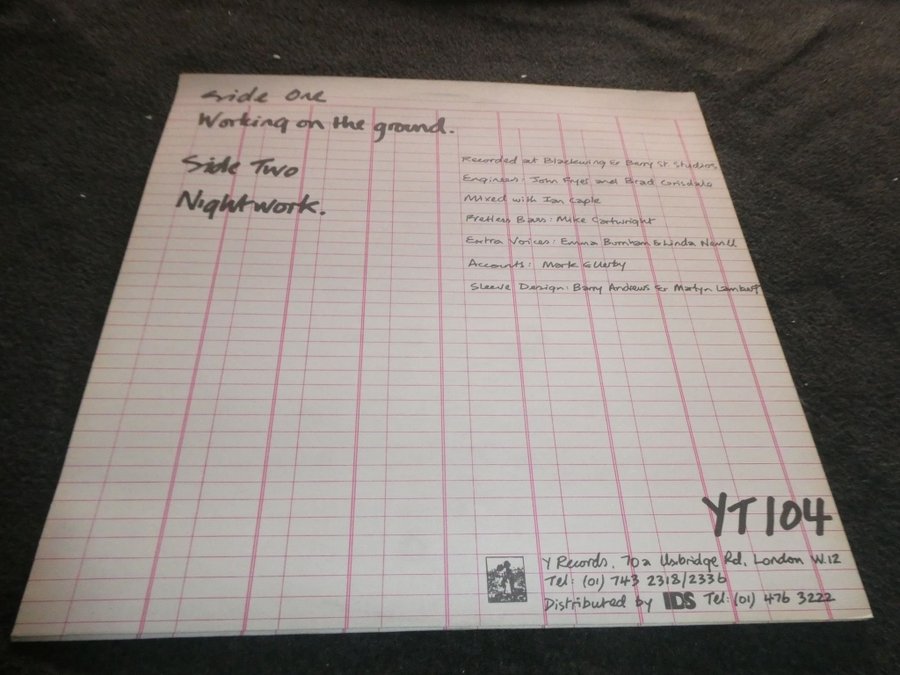 Side One
Working on the ground.
Side Two
Nightwork.
Recorded at Blackwing & Berry St. Studios
Engineers: John Fryer and Brad Grisdale
Mixed with Ian Caple
Fretless Bass: Mike Cartwright
Extra Voices: Emma Burnham & Linda Newell
Accounts: Mark Ellerby
Sleeve Design: Barry Andrews & Martyn Lambert
YT104
Y Records, 70a Uxbridge Rd, London W.12
Tel: (01) 743 2318/2336
Distributed by IDS Tel: (01) 476 3222